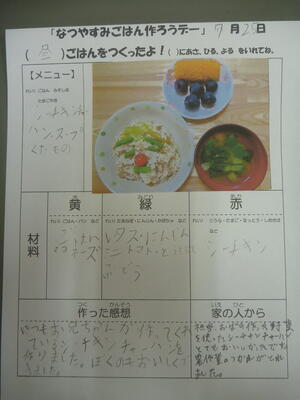 「なつやすみごはん作ろうデー」 7月25日
(昼)ごはんをつくったよ！( )にあさ、ひる、よる をいれてね。
【メニュー】
シーチキンチャーハン
ハン、スープ
くだもの
黄 緑 赤
材料
ごはん
チーズ
レタス・にんじん
ミニトマト・とうもろこし
ぶどう
シーチキン
作った感想
家の人から
いつもお兄ちゃんが作ってくれ
ているシーチキンチャーハンを
作りました。ぼくのもおいしくで
きました。
を使ったシーチキンチャーハン
とてもおいしかったです。
農作業のつかれがとれ
ました。